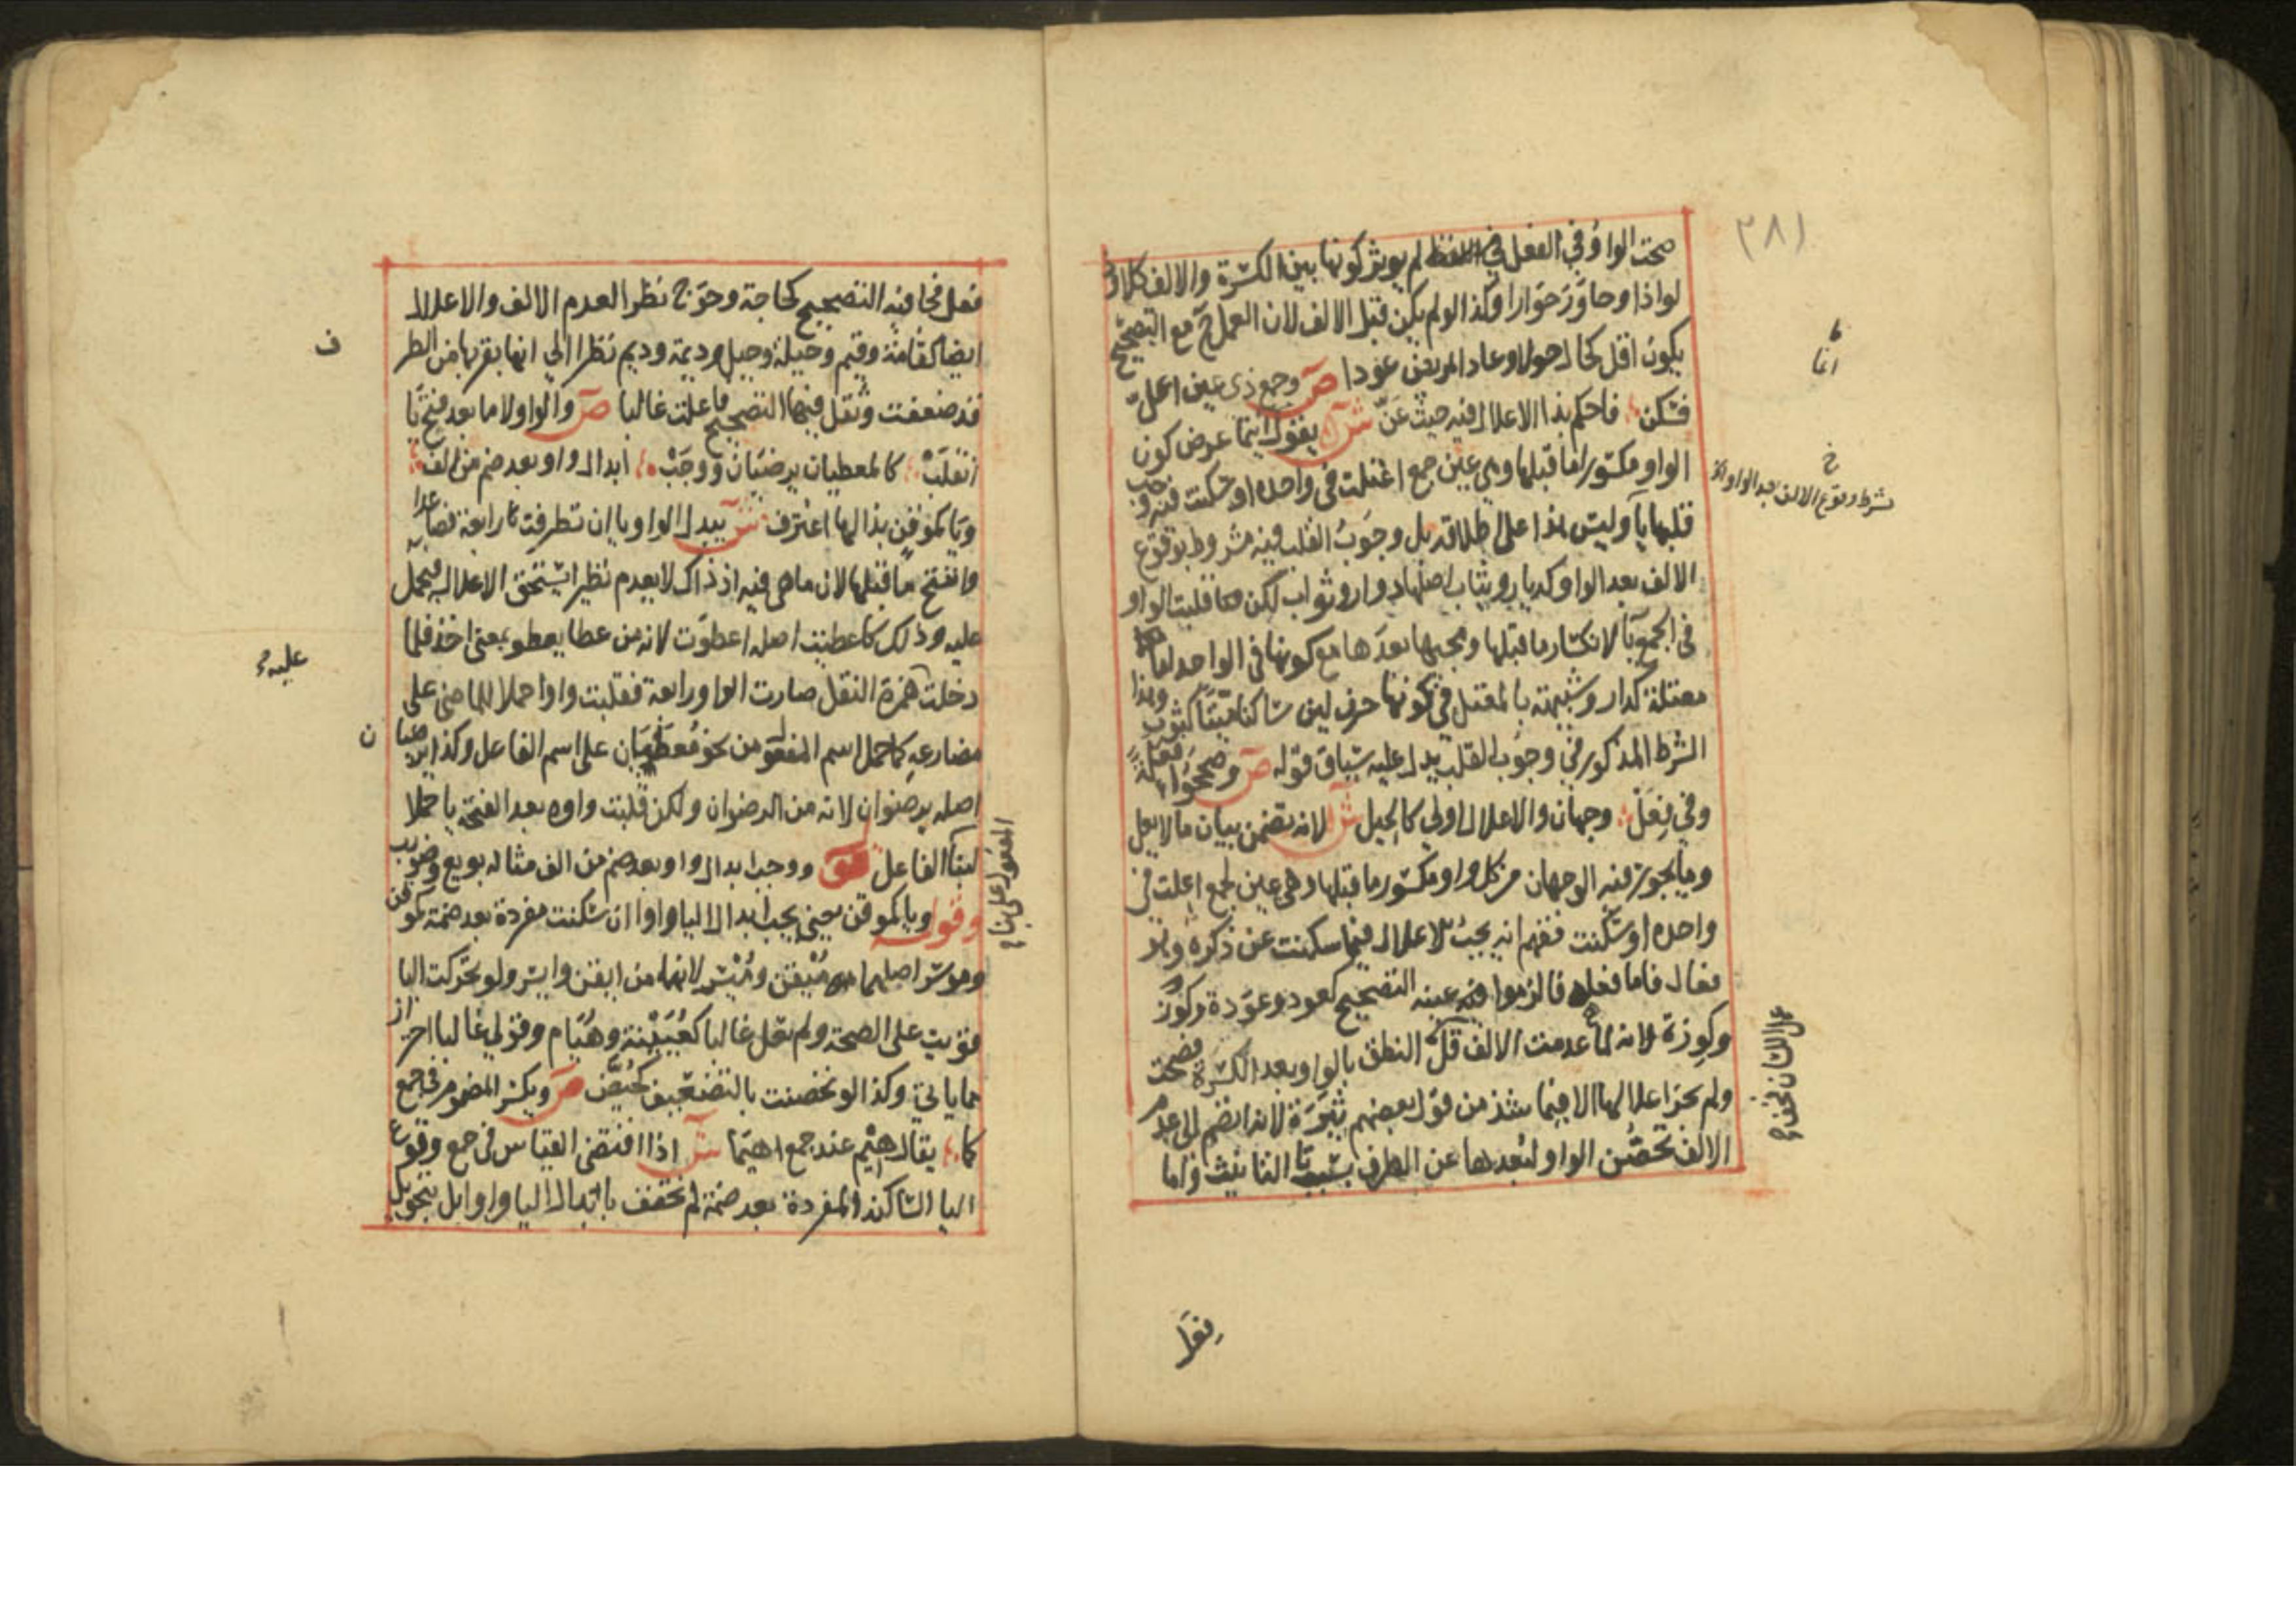 ٣٨١
صحت الواو في الفعل لم يوثر كونها بين الكسرة والالف كلاوذ
لواذا وحاور حوارا وكذا لو لم يكن قبل الالف لان العمل ح مع التصحيح
يكون اقل كحال حولا وعاد المريض عودا ص وجمع ذى عين اعل
فسكن فاحكم بذا الاعلال فيه حيث عن ش يقول انما عرض كون
الواو مكسورا ما قبلها وهي عين جمع اعتلت في واحده او سكنت وجب
قلبها يا وليس هذا على اطلاقه بل وجوب القلب فيه مشروط بوقوع
الالف بعد الواو كديار وثياب اصلها دوار وثواب لكن قلبت الواو
في الجمع يا لانكسار ما قبلها ومجيها بعدها مع كونها في الواحد اما
معتلة كدار وشبيهة بالمعتل في كونها حرف لين ساكنا ميتا كثوب وهذا
الشرط المذكور في وجوب القلب يدل عليه سياق قوله ص وصححوا فعلة
وفي فعل وجهان والاعلال اولي كالحيل ش لانه تضمن بيان ما لا يعل
وما يجوز فيه الوجهان من كل واو مكسور ما قبلها وهي عين لجمع اعلت في
واحده او سكنت ففهم انه يجب الاعلال فيما سكنت عن ذكره وهو
فعال فاما فعلة فالزموا عينه التصحيح كعود وعودة وكوز
وكوزة لانه لما عدمت الالف قل النطق بالواو بعد الكسرة فصحت
ولم يجز اعلالها الا فيما شذ من قول بعضهم ثيرة لانه انضم الى عدم
الالف تحصن الواو لبعدها عن الطرف بسبب تا التانيث واما
انما
خ
بشرط وقوع الالف بعد الواو
عمل اللسان فخف
فعل
فعل فجا فيه التصحيح كحاجة وحوج نظرا لعدم الالف والاعلال
ايضا كقامة وقيم وحيلة وحيل وديمة وديم نظرا الي انها بقربها من الطرف
قد ضعفت وثقل فيها التصحيح فاعلت غالبا ص والواو لاما بعد فتح يا
انقلب كالمعطيان يرضيان ووجب ابدال واو بعد ضم من الف
ويا كموقن بذا لها اعترف ش يبدل الواو يا ان تطرفت رابعة فصاعدا
وانفتح ما قبلها لان ما هى فيه اذ ذاك لا يعدم نظيرا يستحق الاعلال فيحمل
عليه وذلك كاعطيت اصله اعطوت لانه من عطا يعطو بمعنى اخذ فلما
دخلت همزة النقل صارت الواو رابعة فقلبت واوا حملا للماضى على
مضارعه كما حمل اسم المفعول من نحو معطيان على اسم الفاعل وكذا يرضيان
اصله يرضوان لانه من الرضوان ولكن قلبت واوه بعد الفتحة يا حملا
لبنا الفاعل ووجب ابدال واو بعد ضم من الف مثاله بويع وضورب
وقوله ويا كموقن يعني يجب ابدال اليا واوا ان سكنت مفردة بعد ضمة كموقن
وموسر اصلهما ميقن وميسر لانهما من ايقن وايسر ولو تحركت اليا
قويت على الصحة ولم تعل غالبا كعيينة وهيام وقولي غالبا احتراز
مما ياتي وكذا لو تحصنت بالتضعيف كحيض ص ويكسر المضموم في جمع
كما يقال هيم عند جمع اهيما ش اذا اقتضى القياس في جمع وقوع
اليا الساكنة المفردة بعد ضمة لم تخفف بابدال اليا واوا بل بتحويل
ف
عليه
ن
المفعول على بنا